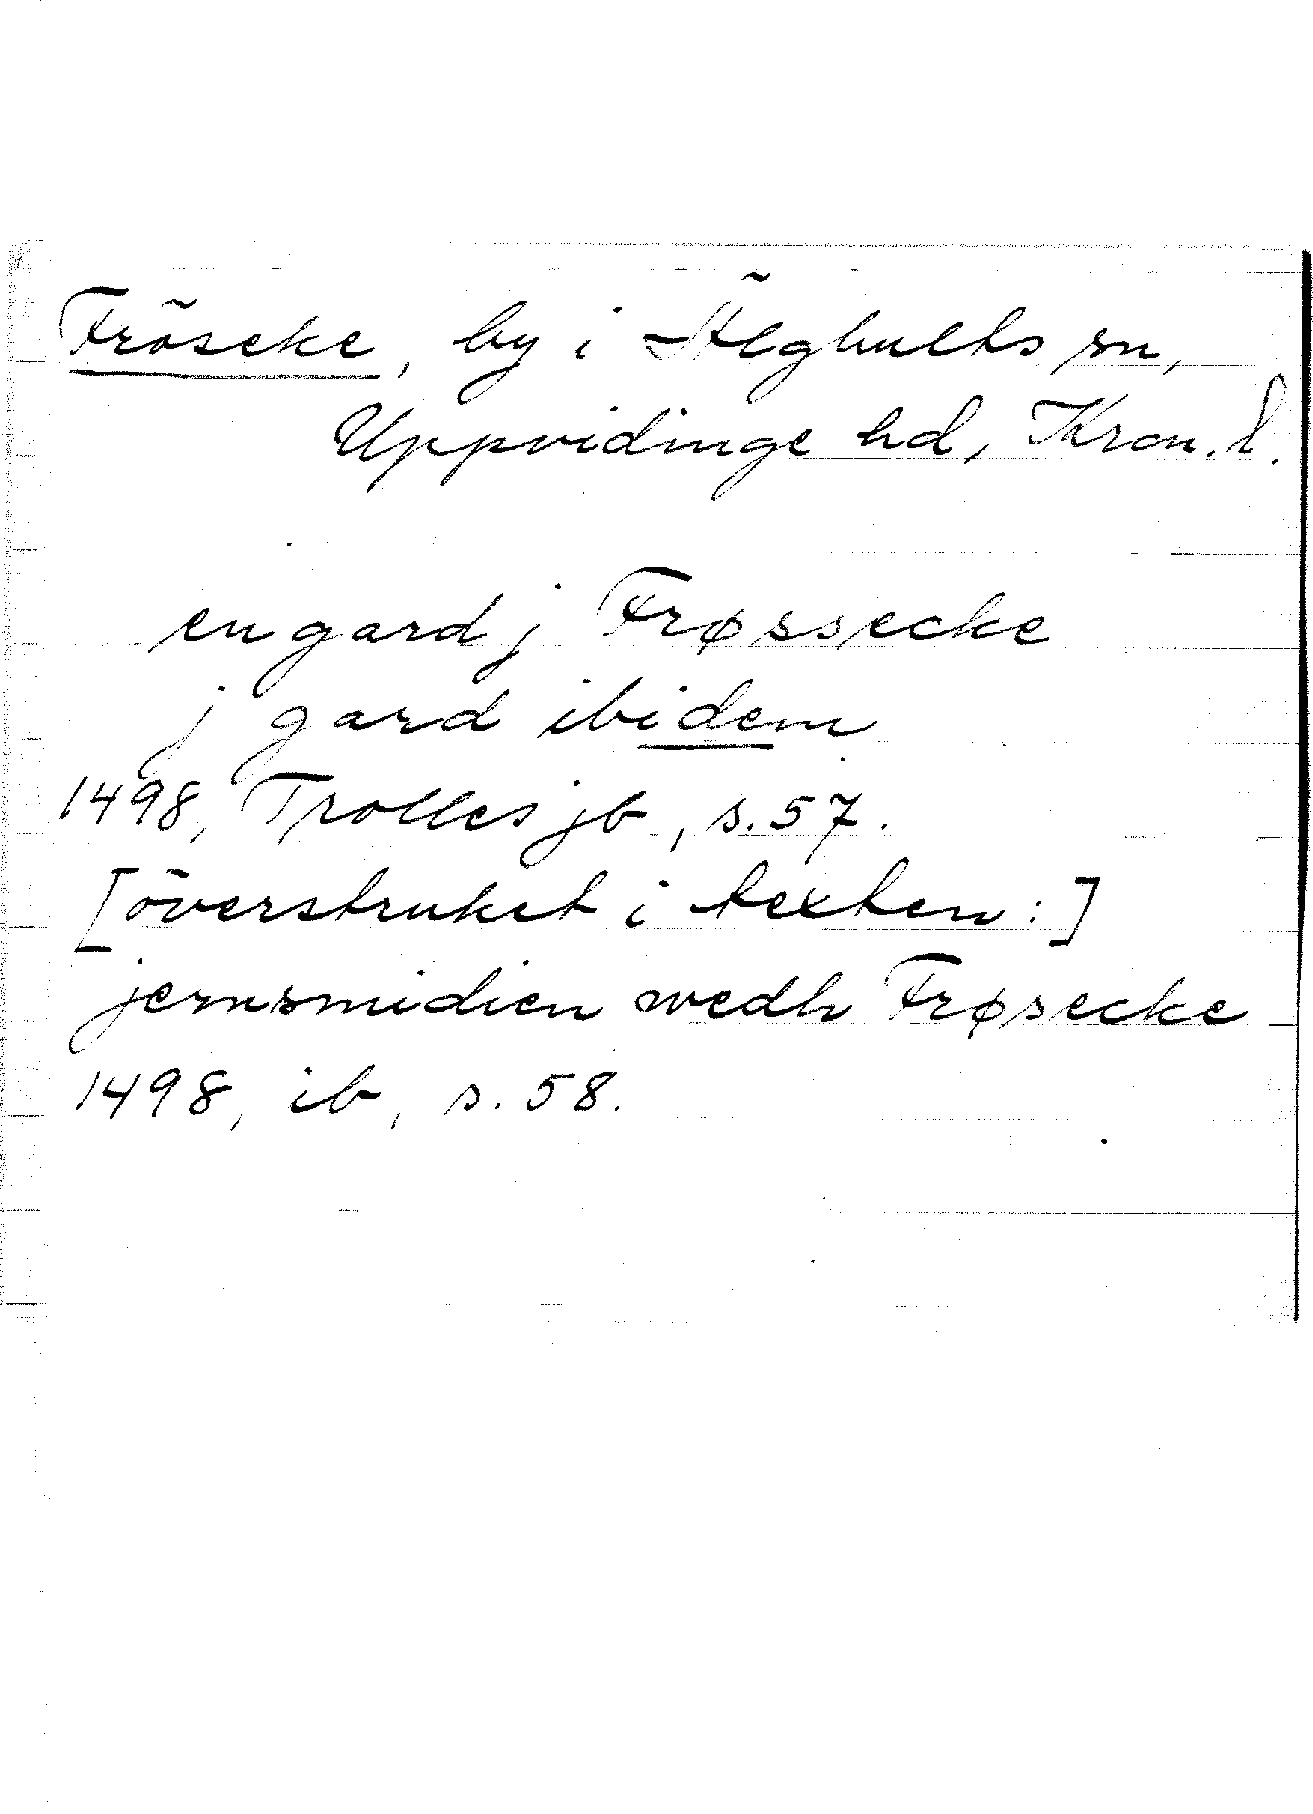 Fröseke, by i Älghults sn,
Uppvidinge hd, Kron. l.
en gard j Frøssecke
j gard ibidem
1498, Trolles jb, s. 57.
[överstruket i texten:]
jernsmidien wedh Frøsecke
1498, ib, s. 58.